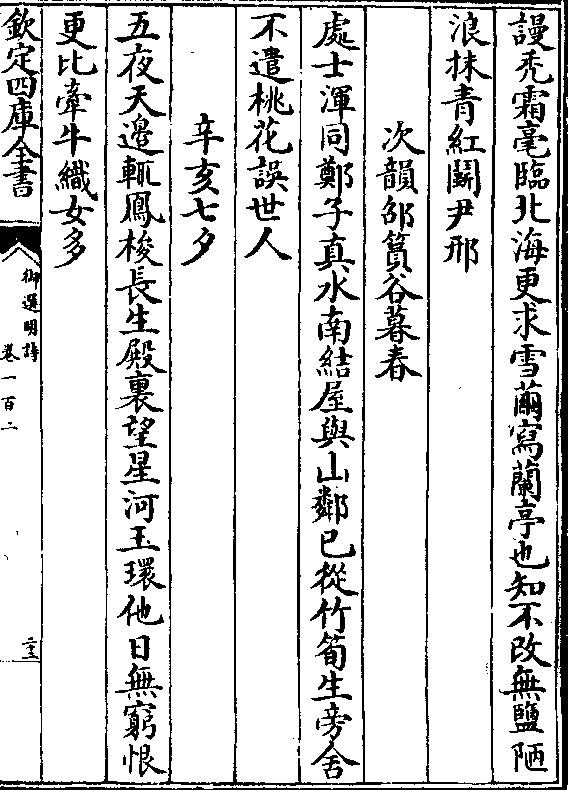 謾禿霜毫臨北海更求雪繭寫蘭亭也知不改無鹽陋
浪抹青紅鬭尹邢
次韻邵篔谷暮春
處士渾同鄭子真水南結屋與山鄰已從竹筍生旁舍
不遣桃花誤世人
辛亥七夕
五夜天邊輒鳳梭長生殿裏望星河玉環他日無窮恨
更比牽牛織女多
欽定四庫全書
御選明詩
卷一百二
二十三